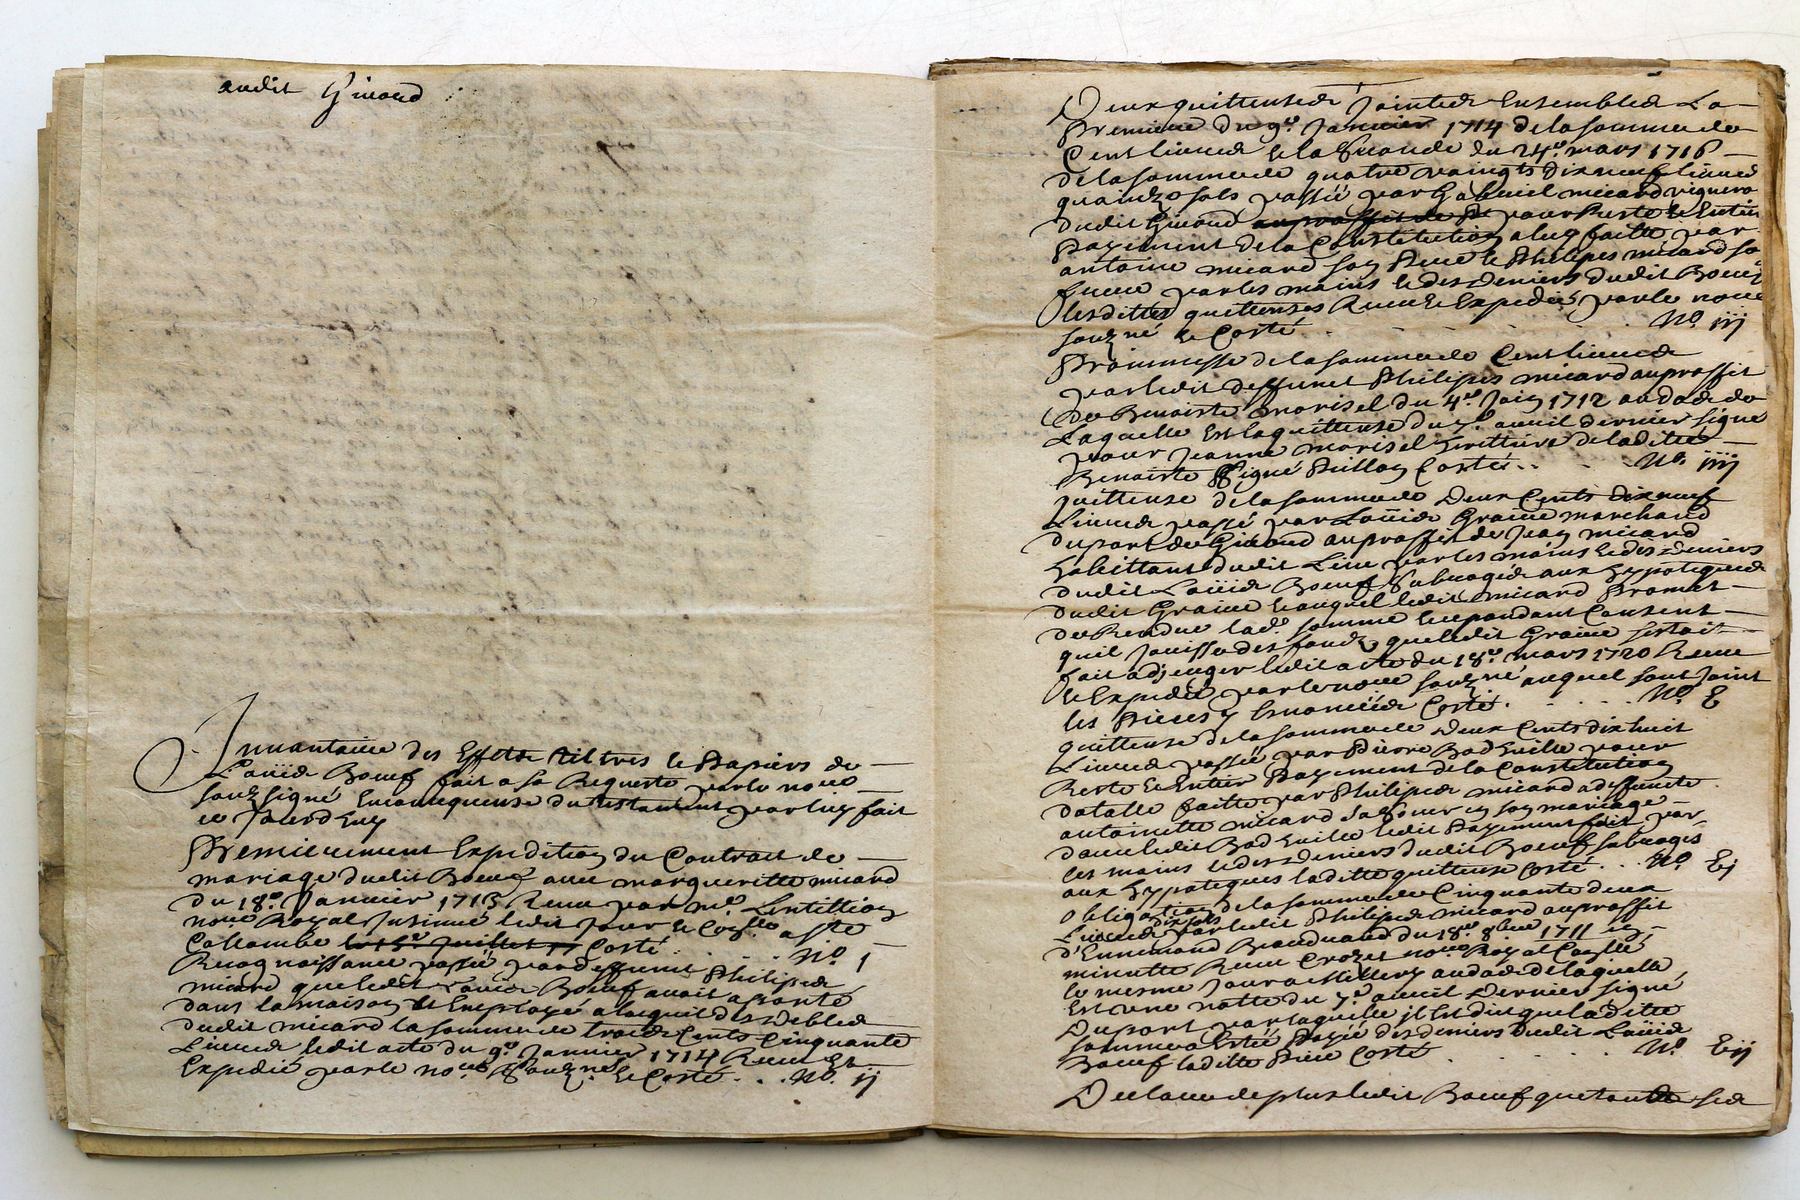 audit Givord
Innuantaire des Effetts tiltres & Papiers de
Louis Boeuf fait a sa Requeste par le no.re
soubsigné En consequense du testament par luy fait
ce Jourdhuy
Premierement Expedition du Contract de
mariage dudit Boeuf avec margueritte micard
du 18.e Janvier 1713 Receu par m.e Lentillion
no.re Royal Insinué ledit Jour &
Collombe le 15.e Juillet Cotté . . . . N.o 1
Recognoissance passé par deffunct Philipes
micard que ledit Louis Boeuf avoit aporté
dans la maison & Employé a lacquit des debtes
dudit micard la somme de trois Cents Cinquante
Livres ledit acte du 9.e Janvier 1714 Receu Et
Expedié par le no.re Soubz.né & Cotté . . N.o ij
Deux quittenses Jointes Ensembles La
Premiere du 9.e Janvier 1714 de la somme de
Cent livres & la Seconde du 24.e mars 1716
de la somme de quatre vaingts dix neuf livres
quinze sols passé par Gabriel micard vigneron
dudit Givord au proffit de pour Reste & Entier
Payement de la Constitution a luy faitte par
antoine micard son Pere & Philipes micard son
frere par les mains & des deniers dudit Boeuf
lesdittes quittenses Receu & Expediés par le no.re
soubz.né & Cotté . . . . N.o iij
Prommesse de la somme de Cent livres
par ledit deffunct Philipes micard au proffit
de Benoiste morisel du 4.e Juin 1712 au dos de
Laquelle Est la quittense du 7.e avril dernier signé
pour Jeanne morisel herittiere de laditte
Benoiste Signé Cotté . . N.o iiij
quittense de la somme de Deux Cents dix neuf
Livres passé par Louis Graine marchand
du port de Givord au proffit de Jean micard
habittant dudit Lieu par les mains & des deniers
dudit Louis Boeuf Subrogés aux hypoteques
dudit Graine & auquel ledit micard Promet
de Rendre lad.e somme & cependant Consent
quil Jouisse des fonds que ledit Graine sestoit
fait adjuger ledit acte du 18.e mars 1720 Receu
& Expedié par le no.re soubz.né auquel sont Joint
les Pieces y Enoncéés Cotté . . . . N.o E
quittense de la somme de deux Cents dix huit
Livres passé par Pierre Badeuille pour
Reste & Entier Payement de la Constitution
dotalle faitte par Philipes micard a deffuncte
antoinette micard sa Soeur en son mariage
avec ledit Badeuille ledit Payement fait par
les mains & des deniers dudit Boeuf subrogés
aux hypoteques laditte quittense Cotté . . . N.o Ej
obligation de la somme de Cinquante deux
Livres dix sols par ledit Philipes micard au proffit
d'Ennemond du 18.e 8bre 1711 en
minutte Receu Crozet no.re Royal
le mesme Jour au dos de laquelle
Est une notte du 7.e avril Dernier signé
Dupont par laquelle Il Est dit que laditte
somme a Esté Payée des deniers dudit Louis
Boeuf laditte Piece Cotté . . . . N.o Eij
Declare de plus ledit Boeuf que